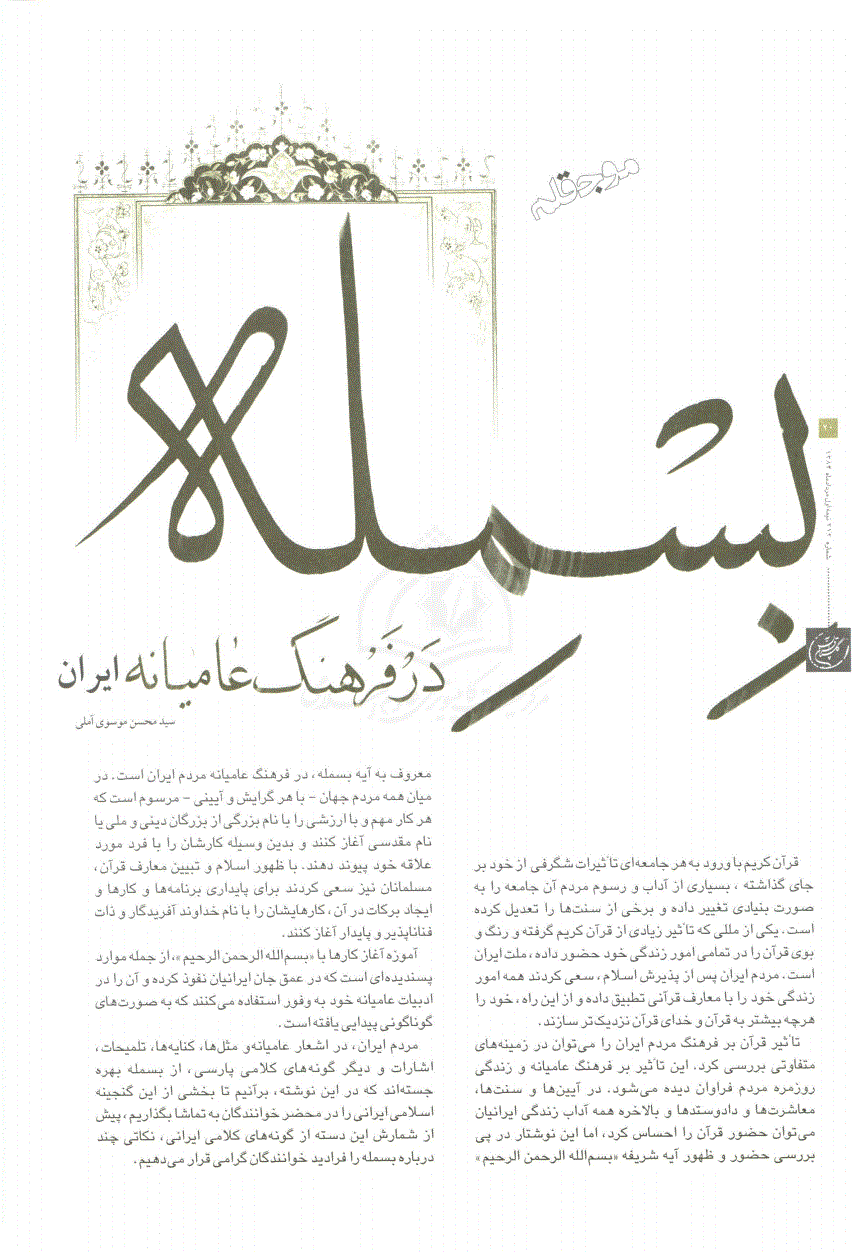 موج قله
بسمله
در فرهنگ عامیانه ایران
سید محسن موسوی آملی
۲۰
شماره ۲۱۲ نیمه اول مرداد ماه ۱۳۸۴
قرآن کریم با ورود به هر جامعه‌ای تأثیرات شگرفی از خود بر
جای گذاشته ، بسیاری از آداب و رسوم مردم آن جامعه را به
صورت بنیادی تغییر داده و برخی از سنت‌ها را تعدیل کرده
است. یکی از مللی که تأثیر زیادی از قرآن کریم گرفته و رنگ و
بوی قرآن را در تمامی امور زندگی خود حضور داده، ملت ایران
است. مردم ایران پس از پذیرش اسلام، سعی کردند همه امور
زندگی خود را با معارف قرآنی تطبیق داده و از این راه، خود را
هرچه بیشتر به قرآن و خدای قرآن نزدیک‌تر سازند.
تأثیر قرآن بر فرهنگ مردم ایران را می‌توان در زمینه‌های
متفاوتی بررسی کرد. این تأثیر بر فرهنگ عامیانه و زندگی
روزمره مردم فراوان دیده می‌شود. در آیین‌ها و سنت‌ها،
معاشرت‌ها و دادوستدها و بالاخره همه آداب زندگی ایرانیان
می‌توان حضور قرآن را احساس کرد، اما این نوشتار در پی
بررسی حضور و ظهور آیه شریفه «بسم‌الله الرحمن الرحیم»
معروف به آیه بسمله، در فرهنگ عامیانه مردم ایران است. در
میان همه مردم جهان - با هر گرایش و آیینی - مرسوم است که
هر کار مهم و با ارزشی را با نام بزرگی از بزرگان دینی و ملی یا
نام مقدسی آغاز کنند و بدین وسیله کارشان را با فرد مورد
علاقه خود پیوند دهند. با ظهور اسلام و تبیین معارف قرآن،
مسلمانان نیز سعی کردند برای پایداری برنامه‌ها و کارها و
ایجاد برکات در آن، کارهایشان را با نام خداوند آفریدگار و ذات
فناناپذیر و پایدار آغاز کنند.
آموزه آغاز کارها با «بسم‌الله الرحمن الرحیم»، از جمله موارد
پسندیده‌ای است که در عمق جان ایرانیان نفوذ کرده و آن را در
ادبیات عامیانه خود به وفور استفاده می‌کنند که به صورت‌های
گوناگونی پیدایی یافته است.
مردم ایران، در اشعار عامیانه و مثل‌ها، کنایه‌ها، تلمیحات،
اشارات و دیگر گونه‌های کلامی پارسی، از بسمله بهره
جسته‌اند که در این نوشته، برآنیم تا بخشی از این گنجینه
اسلامی ایرانی را در محضر خوانندگان به تماشا بگذاریم، پیش
از شمارش این دسته از گونه‌های کلامی ایرانی، نکاتی چند
درباره بسمله را فرادید خوانندگان گرامی قرار می‌دهیم.